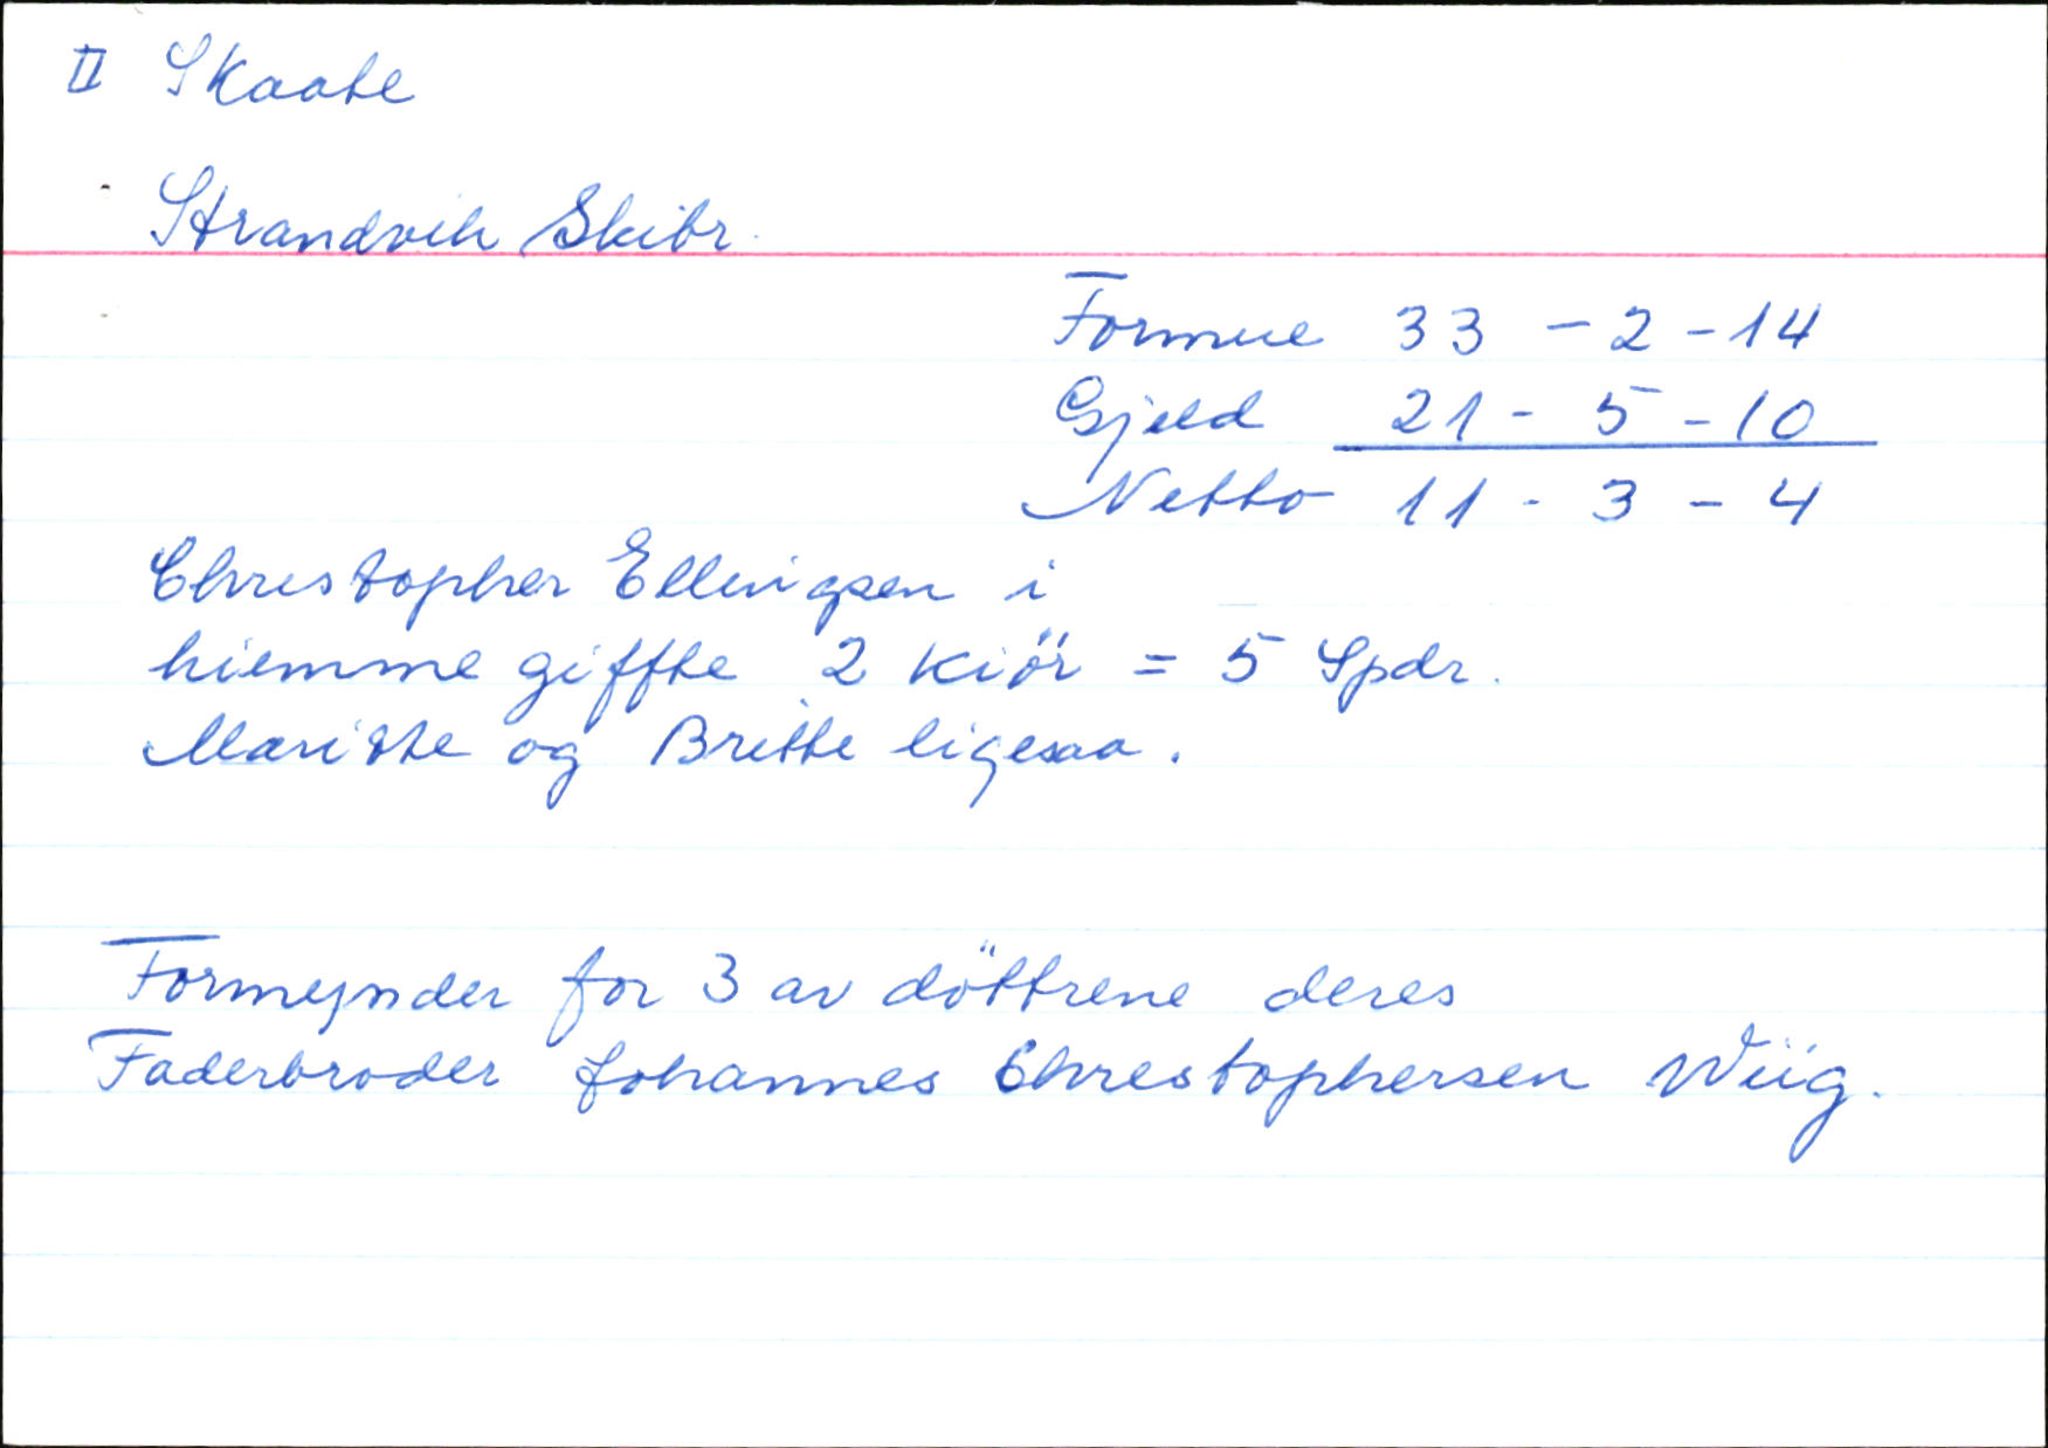 II Skaate
Strandvik Skibr.
Formue 33 - 2 - 14
Gjeld 21 - 5 - 10
Netto 11 - 3 - 4
Christopher Ellingsen i
hiemme giffte 2 kiör = 5 Spdr.
Mariste og Britte ligesaa.
Formynder for 3 av döttrene deres
Faderbroder Johannes Christophersen Wiig.